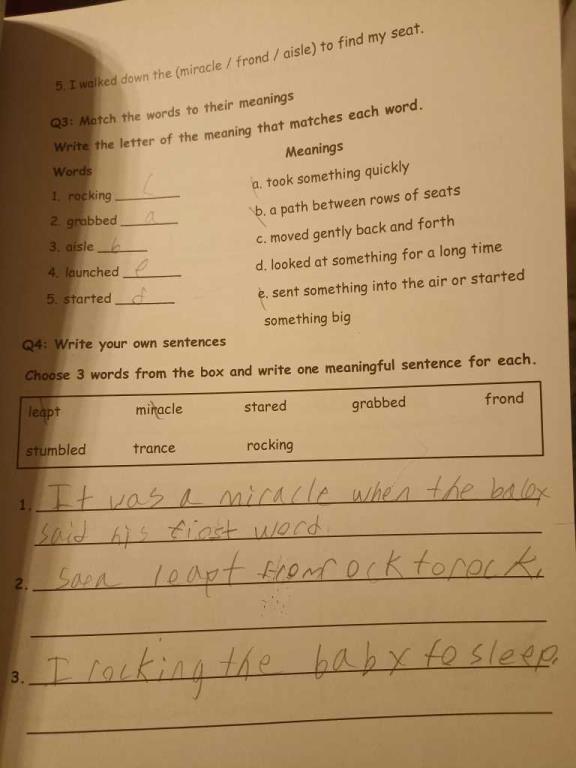 5. I walked down the (miracle / frond / aisle) to find my seat.
Q3: Match the words to their meanings
Write the letter of the meaning that matches each word.
Words
Meanings
1. rocking
a. took something quickly
2. grabbed a
b. a path between rows of seats
3. aisle b
c. moved gently back and forth
4. launched e
d. looked at something for a long time
5. started d
e. sent something into the air or started
something big
Q4: Write your own sentences
Choose 3 words from the box and write one meaningful sentence for each.
leapt miracle stared grabbed frond
stumbled trance rocking
1. It was a miracle when the babx
said his first word.
2. leapt from rock to rock.
3. I rocking the babx to sleep.